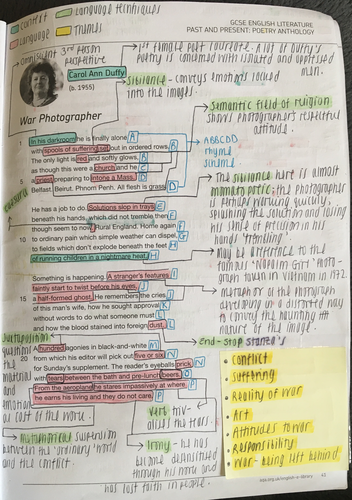 Context
Language techniques
Language
Themes
GCSE ENGLISH LITERATURE
PAST AND PRESENT: POETRY ANTHOLOGY
Omniscient 3rd person
perspective
1st female poet laureate. A lot of Duffy's
poetry is concerned with isolated and oppressed
Carol Ann Duffy
(b. 1955)
Sibilance - conveys emotions locked
into the images.
Semantic field of religion
shows photographer's respectful
attitude.
War Photographer
1 In his darkroom he is finally alone A
with spools of suffering set out in ordered rows. B
The only light is red and softly glows, B
as though this were a church and he C
5 a priest preparing to intone a Mass. D
Belfast. Beirut. Phnom Penh. All flesh is grass. D
ABBCDD
rhyme
scheme
The sibilance here is almost
the photographer
is perhaps working quickly,
spilling the solution and losing
his sense of precision in his
hands 'trembling'
caesura
He has a job to do. Solutions slop in trays E
beneath his hands, which did not tremble then F
though seem to now. Rural England. Home again F
10 to ordinary pain which simple weather can dispel, G
to fields which don't explode beneath the feet H
of running children in a nightmare heat. H
May be a reference to the
famous 'Napalm Girl' photo-
graph taken in Vietnam in 1972.
Something is happening. A stranger's features I
faintly start to twist before his eyes, J
15 a half-formed ghost. He remembers the cries J
of this man's wife, how he sought approval K
without words to do what someone must L
and how the blood stained into foreign dust. L
Metaphor of the photograph
developing as a distorted image
to convey the haunting
nature of the image.
End-stop stanza's
Juxtaposition
A hundred agonies in black-and-white M
20 from which his editor will pick out five or six N
for Sunday's supplement. The reader's eyeballs prick N
with tears between the bath and pre-lunch beers. O
From the aeroplane he stares impassively at where P
he earns his living and they do not care. P
Verb triv-
ialises the tears.
Metaphorical suspension
between the 'ordinary' world
and the conflict.
Irony - he has
become demonised
through his work and
has lost faith in people.
Conflict
Suffering
Reality of war
Art
Attitudes to war
Responsibility
War - being left behind.